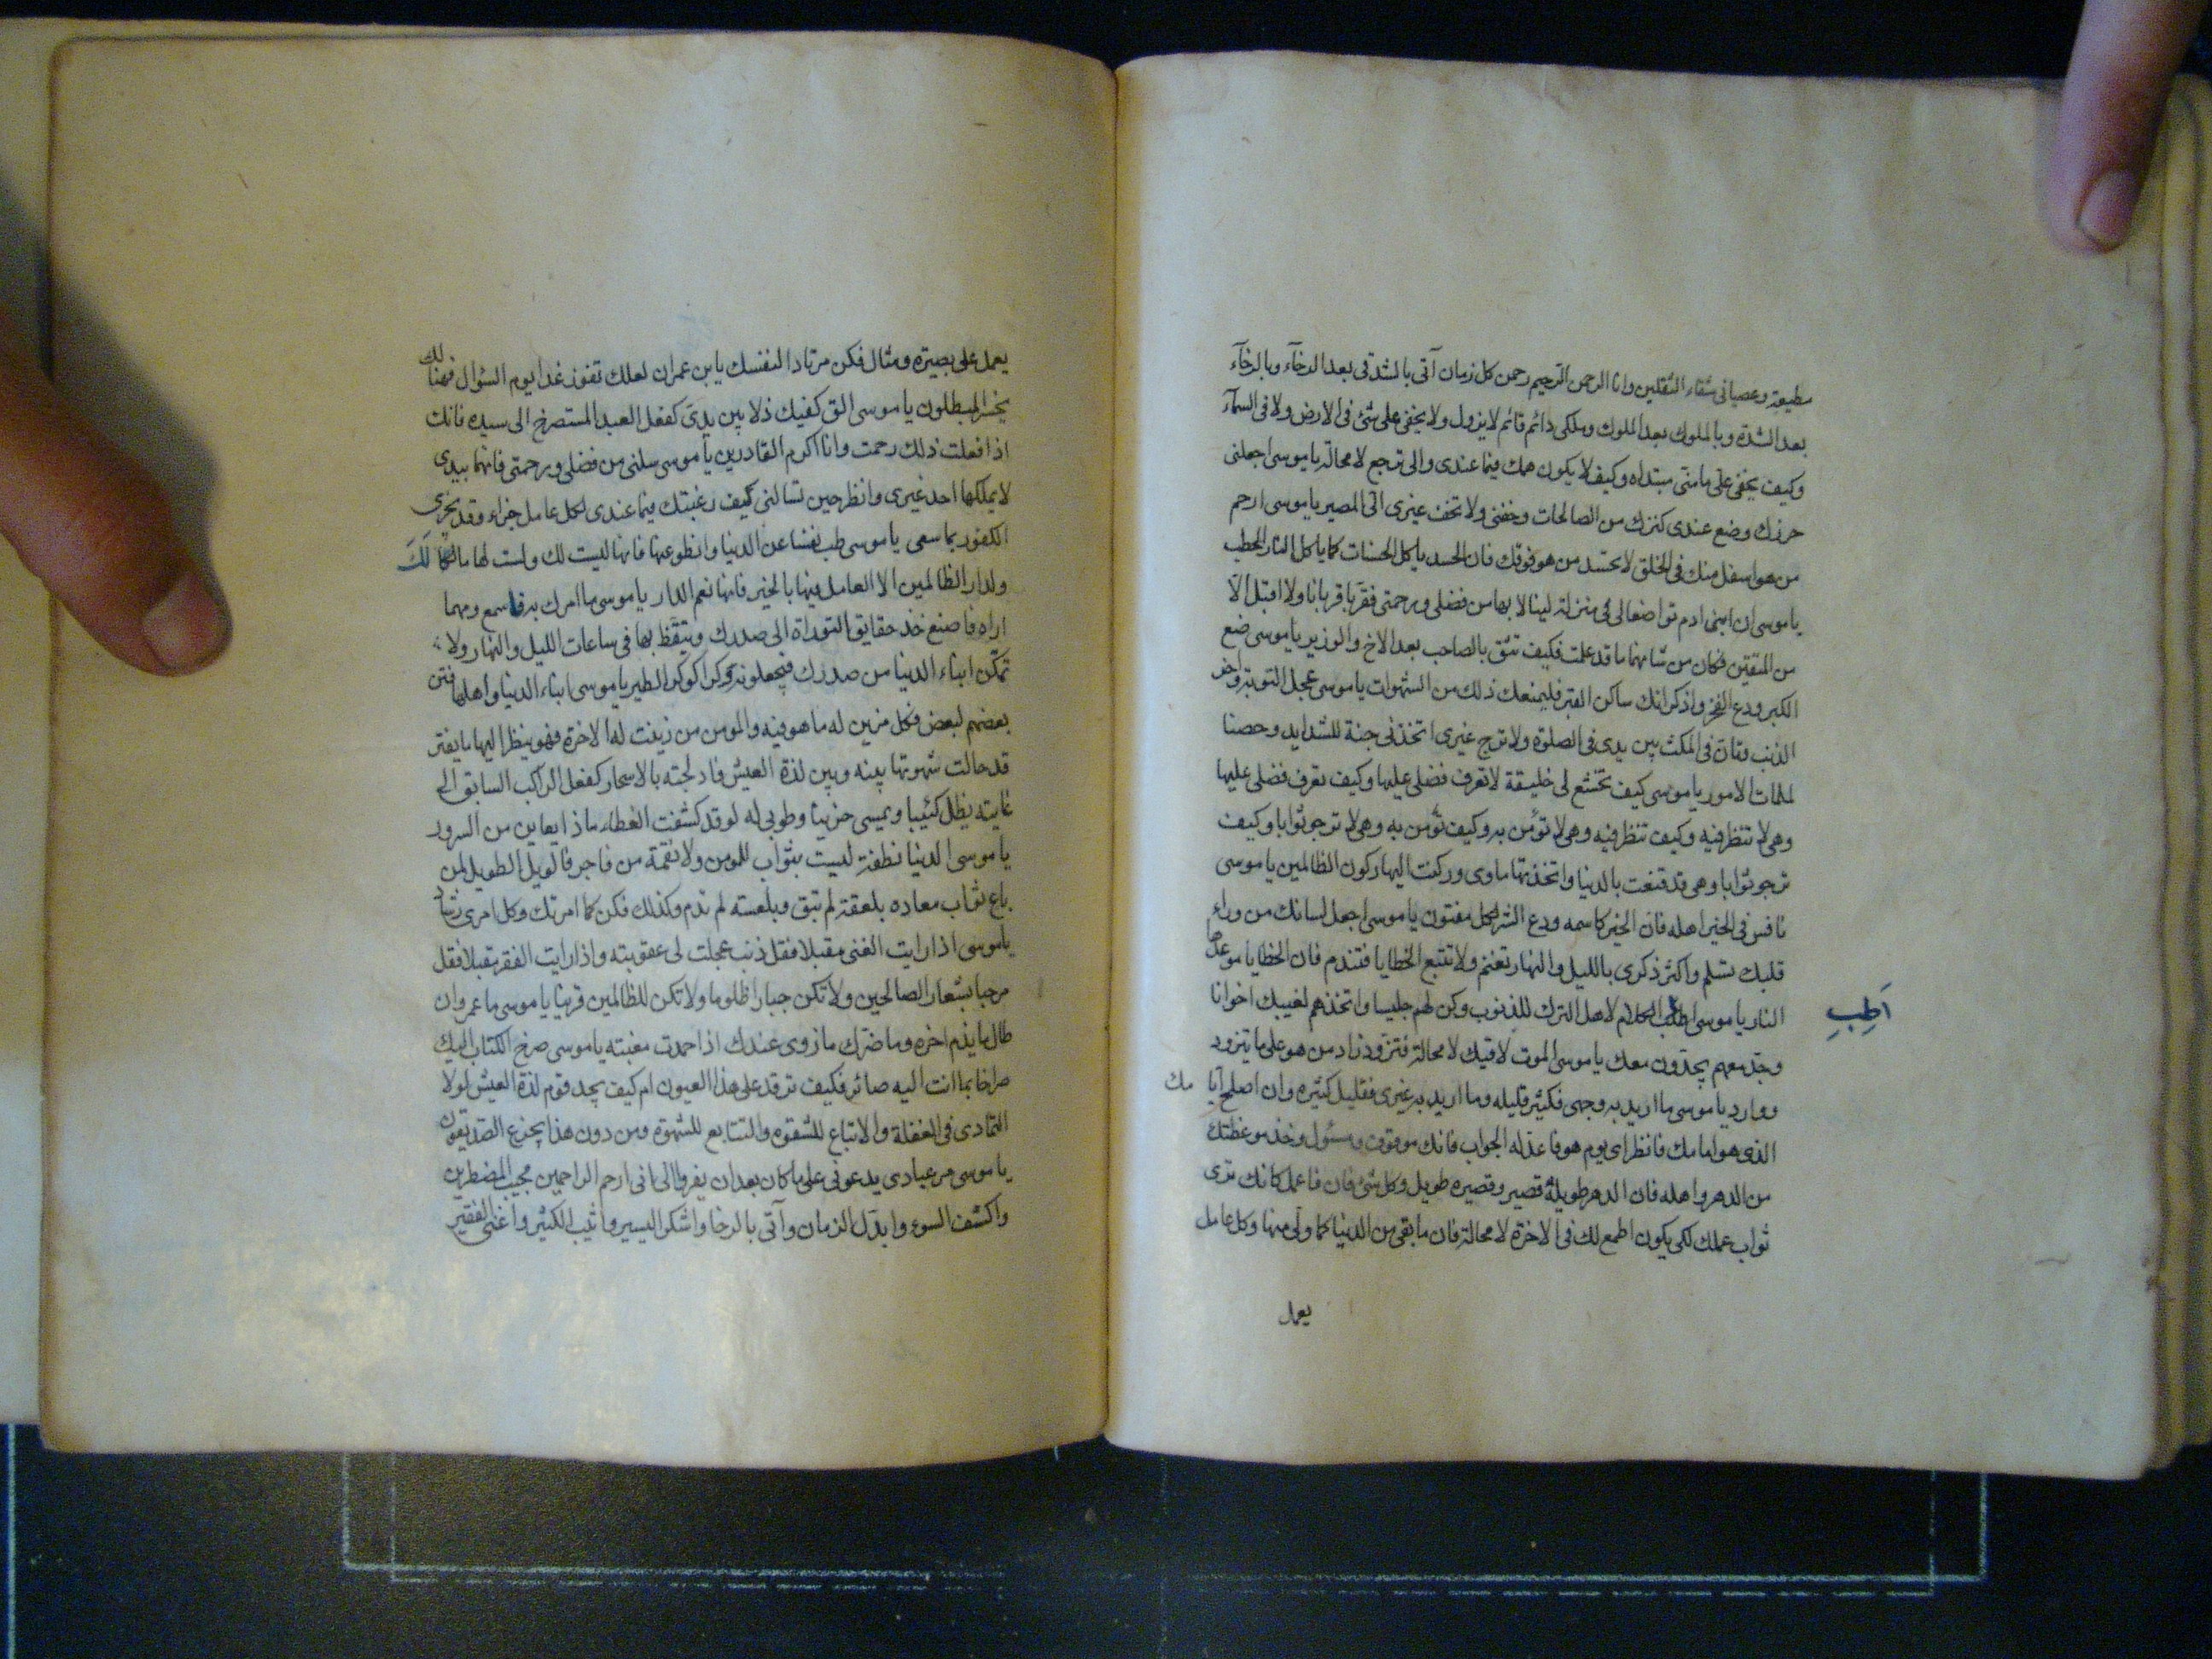 مطيعة وعصيانى شقاء الثقلين وانا الرحمن الرحيم رحمن كل زمان آتى بالشدة بعد الرخآء وبالرخآء
بعد الشدة وبالملوك بعد الملوك وملكى دائم قائم لايزول ولا يخفى على شئ فى الارض ولا فى السمآء
وكيف يخفى على ما منّى مبتداه وكيف لا يكون همك فيما عندى والى ترجع لا محالة ياموسى اجعلنى
حرزك وضع عندى كنزك من الصالحات وخفنى ولا تخف غيرى الىّ المصير ياموسى ارحم
من هو اسفل منك فى الخلق لا تحسد من هو فوقك فان الحسد ياكل الحسنات كما ياكل النار الحطب
ياموسى ان ابنى ادم تواضعا لى فى منزلة لينالا بها من فضلى ورحمتى فقرّبا قربانا ولا اقبل الّا
من المتقين فكان من شانهما ما قد علمت فكيف تثق بالصاحب بعد الاخ والوزير ياموسى ضع
الكبر ودع الفخر واذكر انك ساكن القبر فليمنعك ذلك من الشهوات ياموسى عجل التوبة واخر
الذنب وتانّ فى المكث بين يدى فى الصلوة ولا ترج غيرى اتخذنى جنة للشدايد وحصنا
لملمات الامور ياموسى كيف تخشع لى خليقة لا تعرف فضلى عليها وكيف تعرف فضلى عليها
وهى لا تنظر فيه وكيف تنظر فيه وهى لا تؤمن به وكيف تؤمن به وهى لا ترجو ثوابا وكيف
ترجو ثوابا وهى قد قنعت بالدنيا واتخذتها ماوى وركنت اليها ركون الظالمين ياموسى
نافس فى الخير اهله فان الخير كاسمه ودع الشر لكل مفتون ياموسى اجعل لسانك من وراء
قلبك تسلم واكثر ذكرى بالليل والنهار تغنم ولا تتبع الخطايا فتندم فان الخطايا موعدها
النار ياموسى اطلب الكلام لاهل الترك للذنوب وكن لهم جليسا واتخذهم لغيبك اخوانا
اَطِبِ
وجدّ معهم يجدّون معك ياموسى الموت لاقيك لا محالة فتزود زاد من هو على ما يتزود
ووارد ياموسى ما اريد به وجهى فكثير قليله وما اريد به غيرى فقليل كثيره وان اصلح ايا مك
الذى هو امامك فانظر اى يوم هو فاعدّ له الجواب فانك موقوف ومسئول وخذ موعظتك
من الدهر واهله فان الدهر طويلهُ قصير وقصيره طويل وكل شئ فان فاعمل كانك ترى
ثواب عملك لكى يكون اطمع لك فى الاخرة لا محالة فان ما بقى من الدنيا كما ولّى منها وكل عامل
يعمل
يعمل على بصيرة ومثال فكن مرتادا لنفسك يابن عمران لعلك تفوز غدا يوم السّوال فهنالك
يخسر المبطلون ياموسى الق كفيك ذلا بين يدىّ كفعل العبد المستصرخ الى سيده فانك
اذا فعلت ذلك رحمت وانا اكرم القادرين ياموسى سلنى من فضلى ورحمتى فانهما بيدى
لا يملكها احد غيرى وانظر حين تسالنى كيف رغبتك فيما عندى لكل عامل جزاء وقد يجزى
الكفور بما سعى ياموسى طب نفسا عن الدنيا وانطو عنها فانها ليست لك ولست لها مالك
لَكَ
ولدار الظالمين الا العامل فيها بالخير فانها نعم الدار ياموسى ما امرك به فاسمع ومهما
اراه فاصنع خذ حقايق التوراة الى صدرك وتيقّظ بها فى ساعات الليل والنهار ولا
تمكّن ابناء الدنيا من صدرك فيجعلونه وكرا كوكر الطير ياموسى ابناء الدنيا واهلها فتن
بعضهم لبعض فكل مزين له ما هو فيه والمومن من زينت له الاخرة فهو ينظر اليها ما يفتر
قد حالت شهوتها بينه وبين لذة العيش فادلجته بالاسحار كفعل الراكب السابق الى
غايته يظل كئيبا ويمسى حزينا وطوبى له لو قد كشفت الغطاء ماذا يعاين من السرور
ياموسى الدنيا نطفة ليست بثواب للمومن ولا نقمة من فاجر فالويل الطويل لمن
باع ثواب معاده بلعقة لم تبق وبلعسه لم تدم وكذلك فكن كما امرتك وكل امرى رشاد
ياموسى اذا رايت الغنى مقبلا فقل ذنب عجلت لى عقوبته واذا رايت الفقر مقبلا فقل
مرحبا بشعار الصالحين ولا تكن جبارا ظلوما ولا تكن للظالمين قرينا ياموسى ما عمر وان
طال ما يذم اخره وما ضرك ما زوى عندك اذا حمدت مغبته ياموسى صرخ الكتاب اليك
صراخا بما انت اليه صائر فكيف ترقد على هذا العيون ام كيف يجد قوم لذة العيش لولا
التمادى فى الغفلة والاتباع للشقوه والتتابع للشهوة ومن دون هذا يجزع الصديقون
ياموسى مر عبادى يدعونى على ما كان بعد ان يقروا الى انى ارحم الراحمين مجيب المضطرين
واكشف السوء وابدّل الزمان وآتى بالرخا واشكر اليسير واثيب الكثير واُغنى الفقير